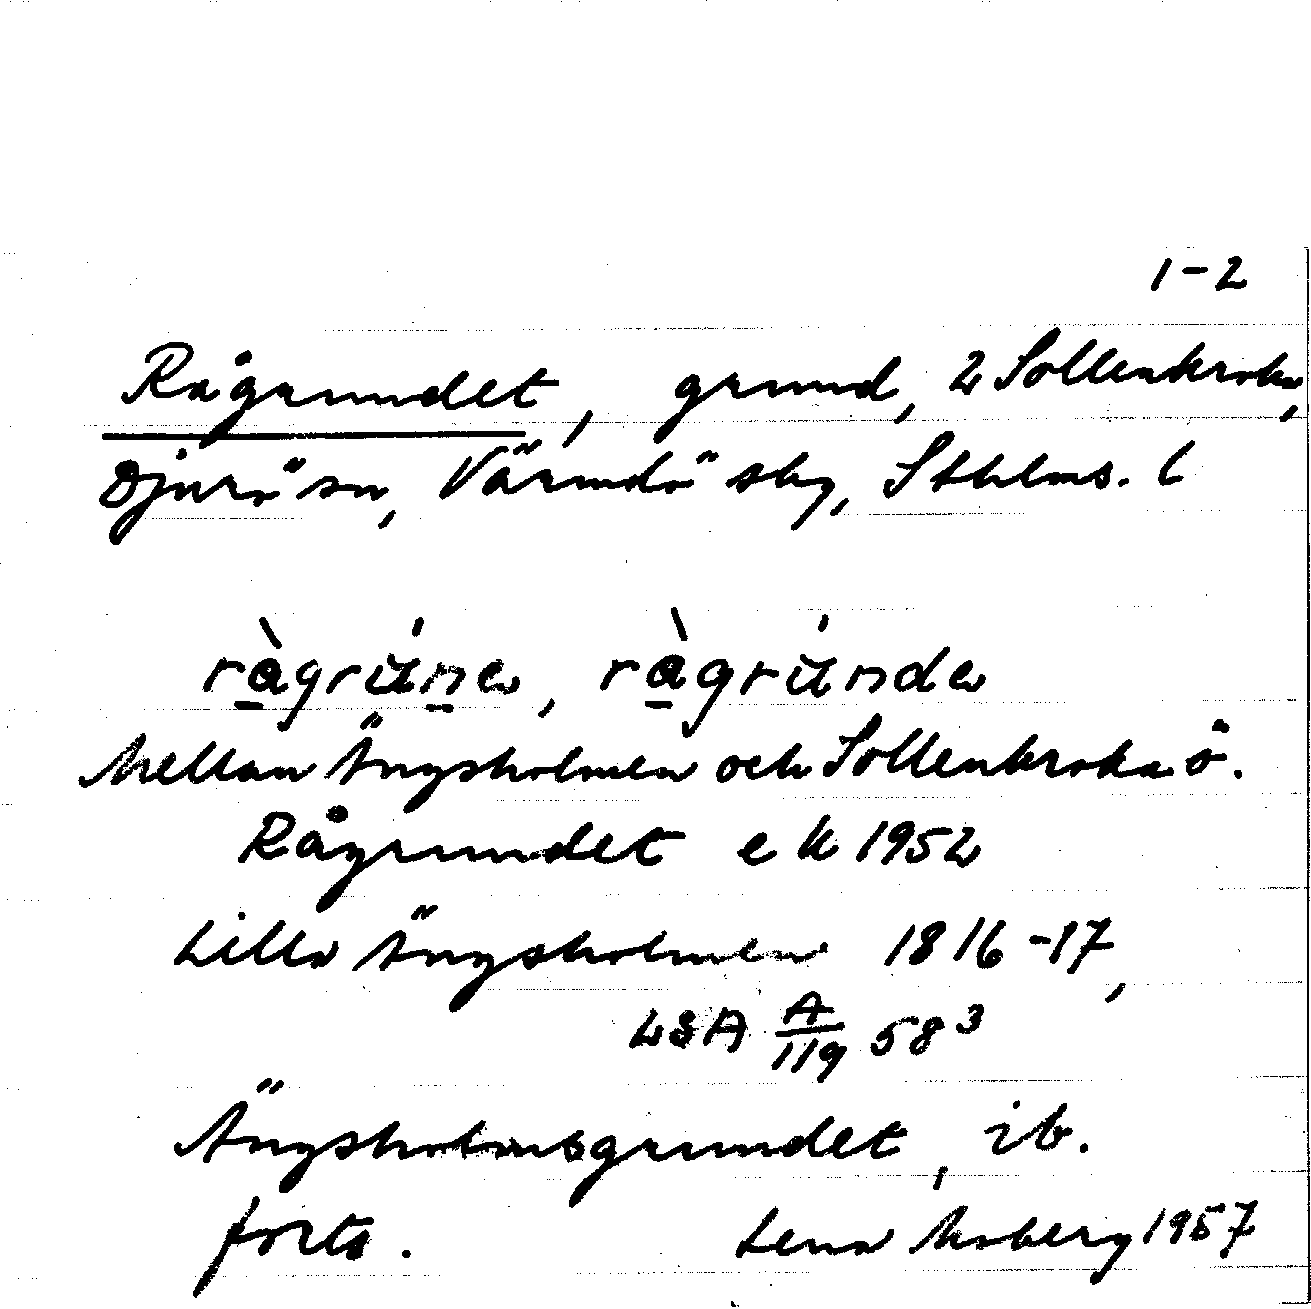 1-2
Rågrundet, grund, 2 Sollenkroka,
Djurö sn, Värmdö skg, Sthlms. l
ràgrúne, ràgrúnde
Mellan Ängsholmen och Sollenkroka ö.
Rågrundet e k 1952
Lilla Ängsholmen 1816-17,
LSA A/119 58³
Ängsholmsgrundet, ib.
forts. Lena Moberg 1957